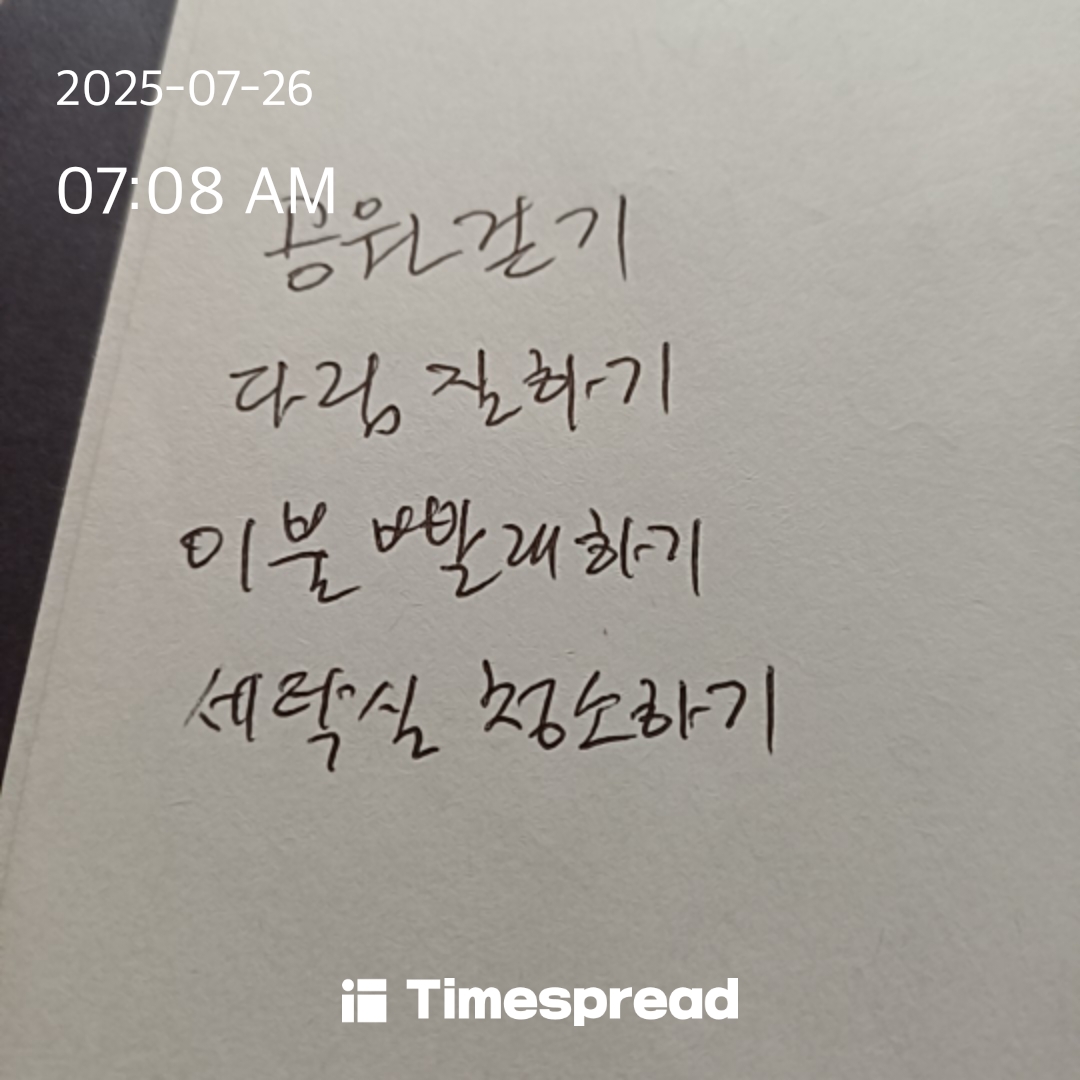 2025-07-26
07:08 AM
공원 걷기
다림질하기
이불 빨래하기
세탁실 청소하기
Timespread